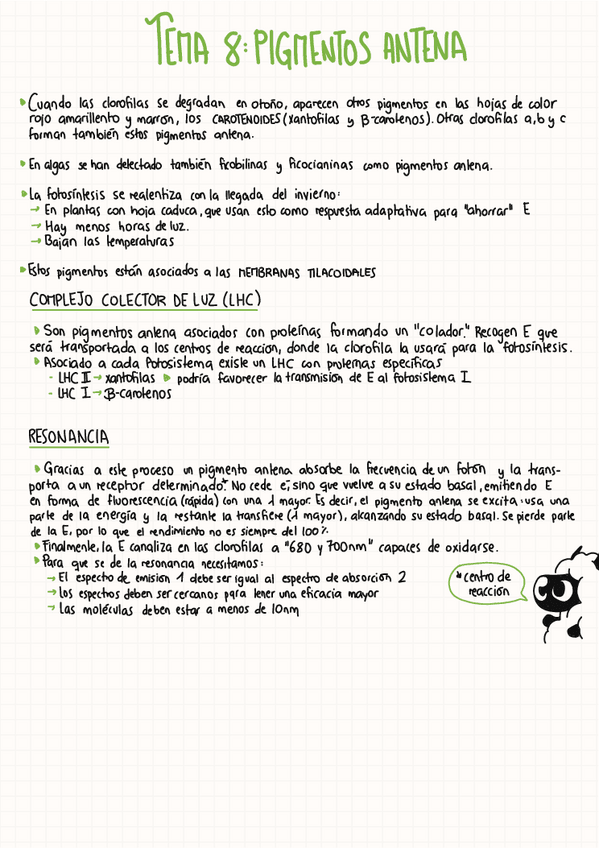 TEMA 8: PIGMENTOS ANTENA
Cuando las clorofilas se degradan en otoño, aparecen otros pigmentos en las hojas de color
rojo amarillento y marrón, los CAROTENOIDES (xantofilas y β-carotenos). Otras clorofilas a, b y c
forman también estos pigmentos antena.
En algas se han detectado también ficobilinas y ficocianinas como pigmentos antena.
La fotosíntesis se realentiza con la llegada del invierno:
→ En plantas con hoja caduca, que usan esto como respuesta adaptativa para "ahorrar" E
→ Hay menos horas de luz.
→ Bajan las temperaturas
Estos pigmentos están asociados a las MEMBRANAS TILACOIDALES
COMPLEJO COLECTOR DE LUZ (LHC)
Son pigmentos antena asociados con proteínas formando un "colador." Recogen E que
será transportada a los centros de reacción, donde la clorofila la usará para la fotosíntesis.
Asociado a cada fotosistema existe un LHC con proteínas específicas
- LHC II → xantofilas ▸ podría favorecer la transmisión de E al fotosistema I
- LHC I → β-carotenos
RESONANCIA
Gracias a este proceso un pigmento antena absorbe la frecuencia de un fotón y la trans-
porta a un receptor determinado*. No cede e⁻, sino que vuelve a su estado basal, emitiendo E
en forma de fluorescencia (rápida) con una λ mayor. Es decir, el pigmento antena se excita, usa una
parte de la energía y la restante la transfiere (λ mayor), alcanzando su estado basal. Se pierde parte
de la E, por lo que el rendimiento no es siempre del 100%.
Finalmente, la E canaliza en las clorofilas a "680 y 700nm" capaces de oxidarse.
Para que se de la resonancia necesitamos:
→ El espectro de emisión 1 debe ser igual al espectro de absorción 2
→ los espectros deben ser cercanos para tener una eficacia mayor
→ Las moléculas deben estar a menos de 10nm
*centro de
reacción